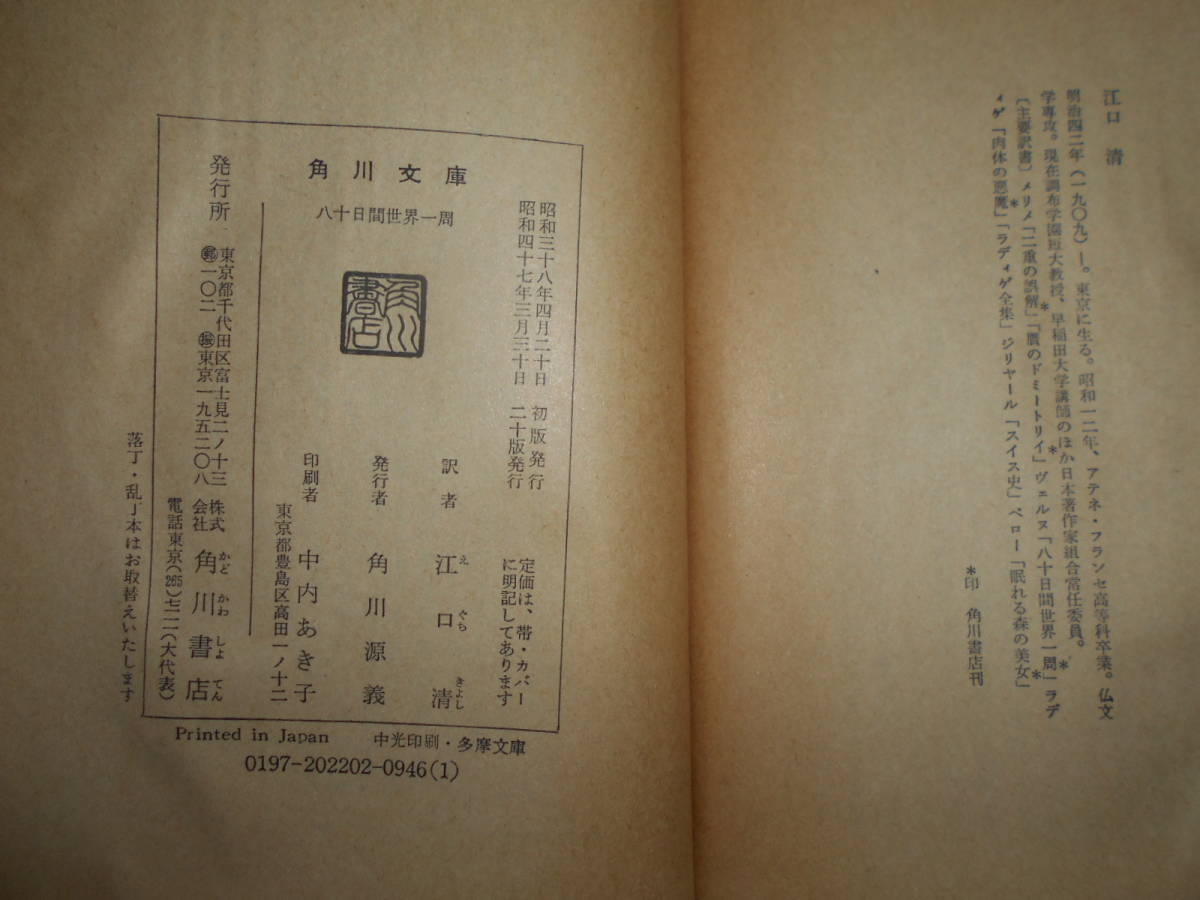 江口　清
明治四二年（一九〇九）ー。東京に生る。昭和一二年、アテネ・フランセ高等科卒業。仏文
学専攻。現在調布学園短大教授、早稲田大学講師のほか日本著作家組合常任委員。
〔主要訳書〕メリメ「二重の誤解」*「贋のドミートリイ」*ヴェルヌ「八十日間世界一周」*ラデ
ィゲ「肉体の悪魔」*「ラディゲ全集」ジリヤール「スイス史」*ペロー「眠れる森の美女」*
*印　角川書店刊
角川文庫
八十日間世界一周
角川書店
昭和三十八年四月二十日　初版発行
昭和四十七年三月三十日　二十版発行
定価は、帯・カバー
に明記してあります
訳者　江口清
えぐちきよし
発行者　角川源義
印刷者　中内あき子
東京都豊島区高田一ノ十二
発行所
東京都千代田区富士見二ノ十三
郵一〇二　振東京一九五二〇八
株式会社　角川書店
かどかわしよてん
電話東京(265)七一一一(大代表)
落丁・乱丁本はお取替えいたします
Printed in Japan　中光印刷・多摩文庫
0197-202202-0946(1)